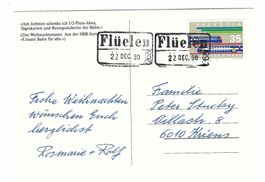 «Am liebsten schenke ich 1/2-Preis-Abos,
Tageskarten und Reisegutscheine der Bahn.»
(Der Weihnachtsmann. Aus der SBB-Serie
«Unsere Bahn für alle».)
Flüelen
22 DEC. 90
Flüelen
22 DEC. 90
HELVETIA
35
Frohe Weihnachten
wünschen Euch
herzlichst
Rosmarie + Rolf
Familie
Peter
Villastr. 8
6010 Kriens